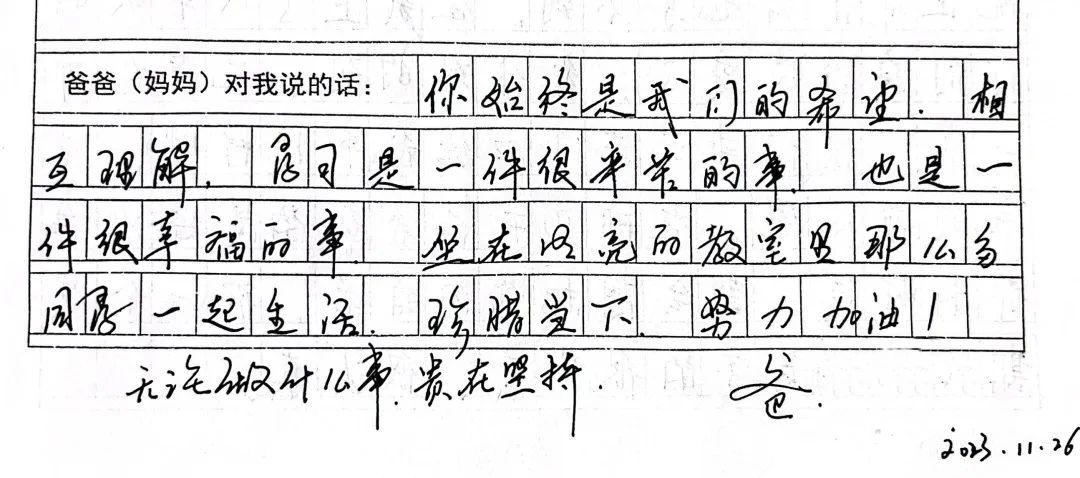 爸爸（妈妈）对我说的话： 你始终是我们的希望. 相
互理解. 学习是一件很辛苦的事. 也是一
件很幸福的事. 坐在洺亮的教室里那么多
同学一起生活. 珍腊当下. 努力加油！
无论做什么事. 贵在坚持.
爸.
2023.11.26